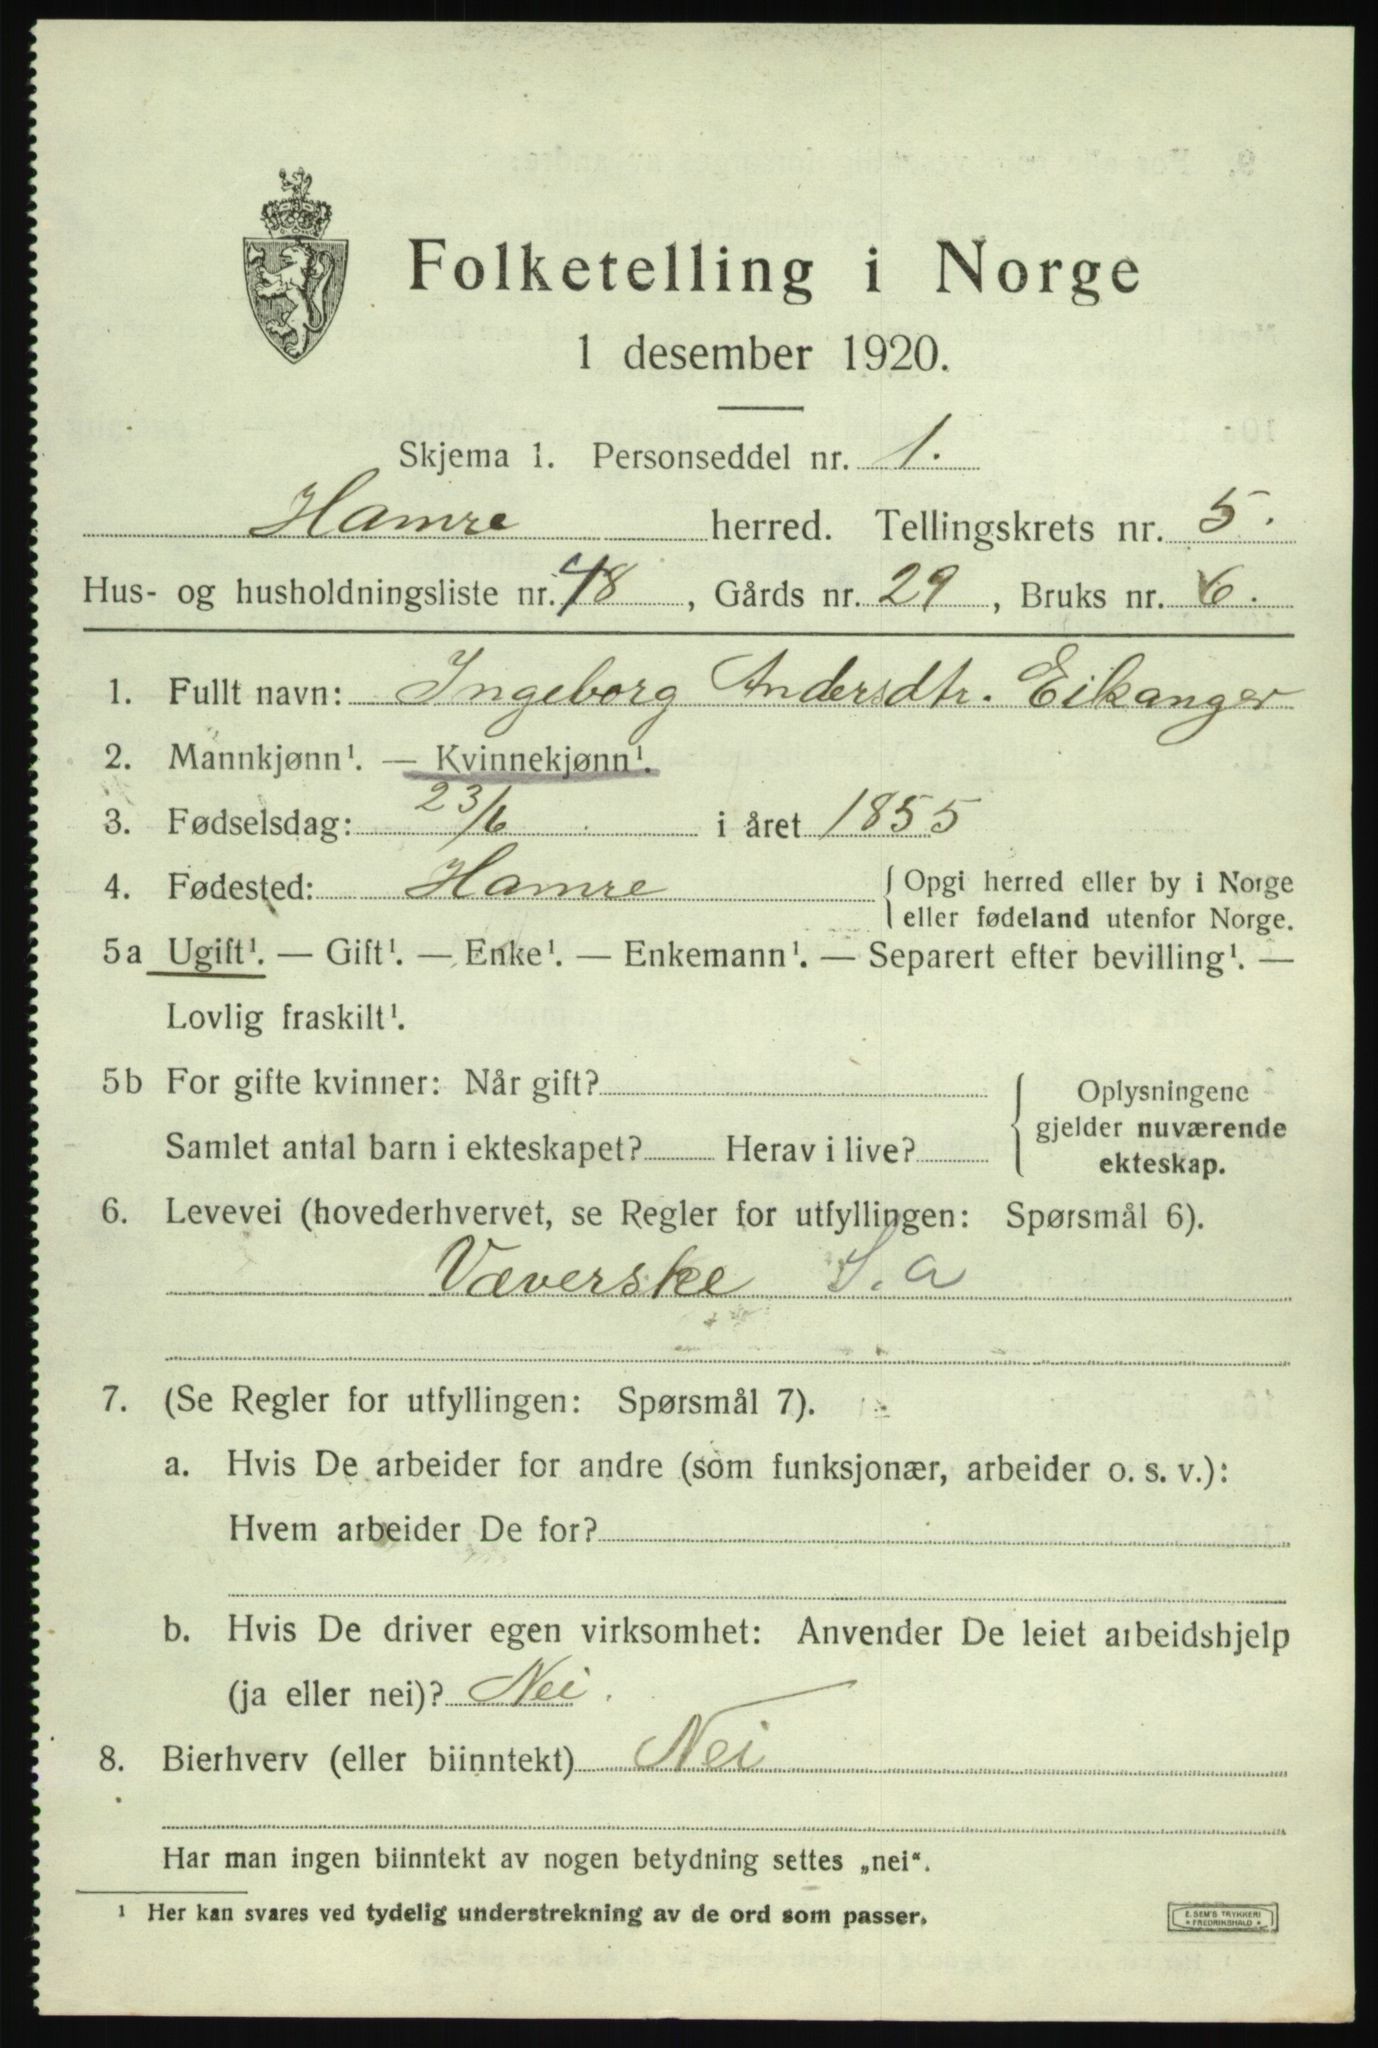 Folketelling i Norge
1 desember 1920.
Skjema 1. Personseddel nr. 1.
Hamre herred. Tellingskrets nr. 5.
Hus- og husholdningsliste nr. 48, Gårds nr. 29, Bruks nr. 6.
1. Fullt navn: Ingeborg Andersdtr. Eikanger
2. Mannkjønn¹. — Kvinnekjønn¹.
3. Fødselsdag: 23/6 i året 1855
4. Fødested: Hamre { Opgi herred eller by i Norge
eller fødeland utenfor Norge.
5a Ugift¹. — Gift¹. — Enke¹. — Enkemann¹. — Separert efter bevilling¹. —
Lovlig fraskilt¹.
5b For gifte kvinner: Når gift?
Samlet antal barn i ekteskapet? Herav i live?
{ Oplysningene
gjelder nuværende
ekteskap.
6. Levevei (hovederhvervet, se Regler for utfyllingen: Spørsmål 6).
Væverske S.a
7. (Se Regler for utfyllingen: Spørsmål 7).
a. Hvis De arbeider for andre (som funksjonær, arbeider o. s. v.):
Hvem arbeider De for?
b. Hvis De driver egen virksomhet: Anvender De leiet arbeidshjelp
(ja eller nei)? Nei.
8. Bierhverv (eller biinntekt) Nei
Har man ingen biinntekt av nogen betydning settes „nei“.
¹ Her kan svares ved tydelig understrekning av de ord som passer.
E. SEM'S TRYKKERI
* FREDRIKSHALD *